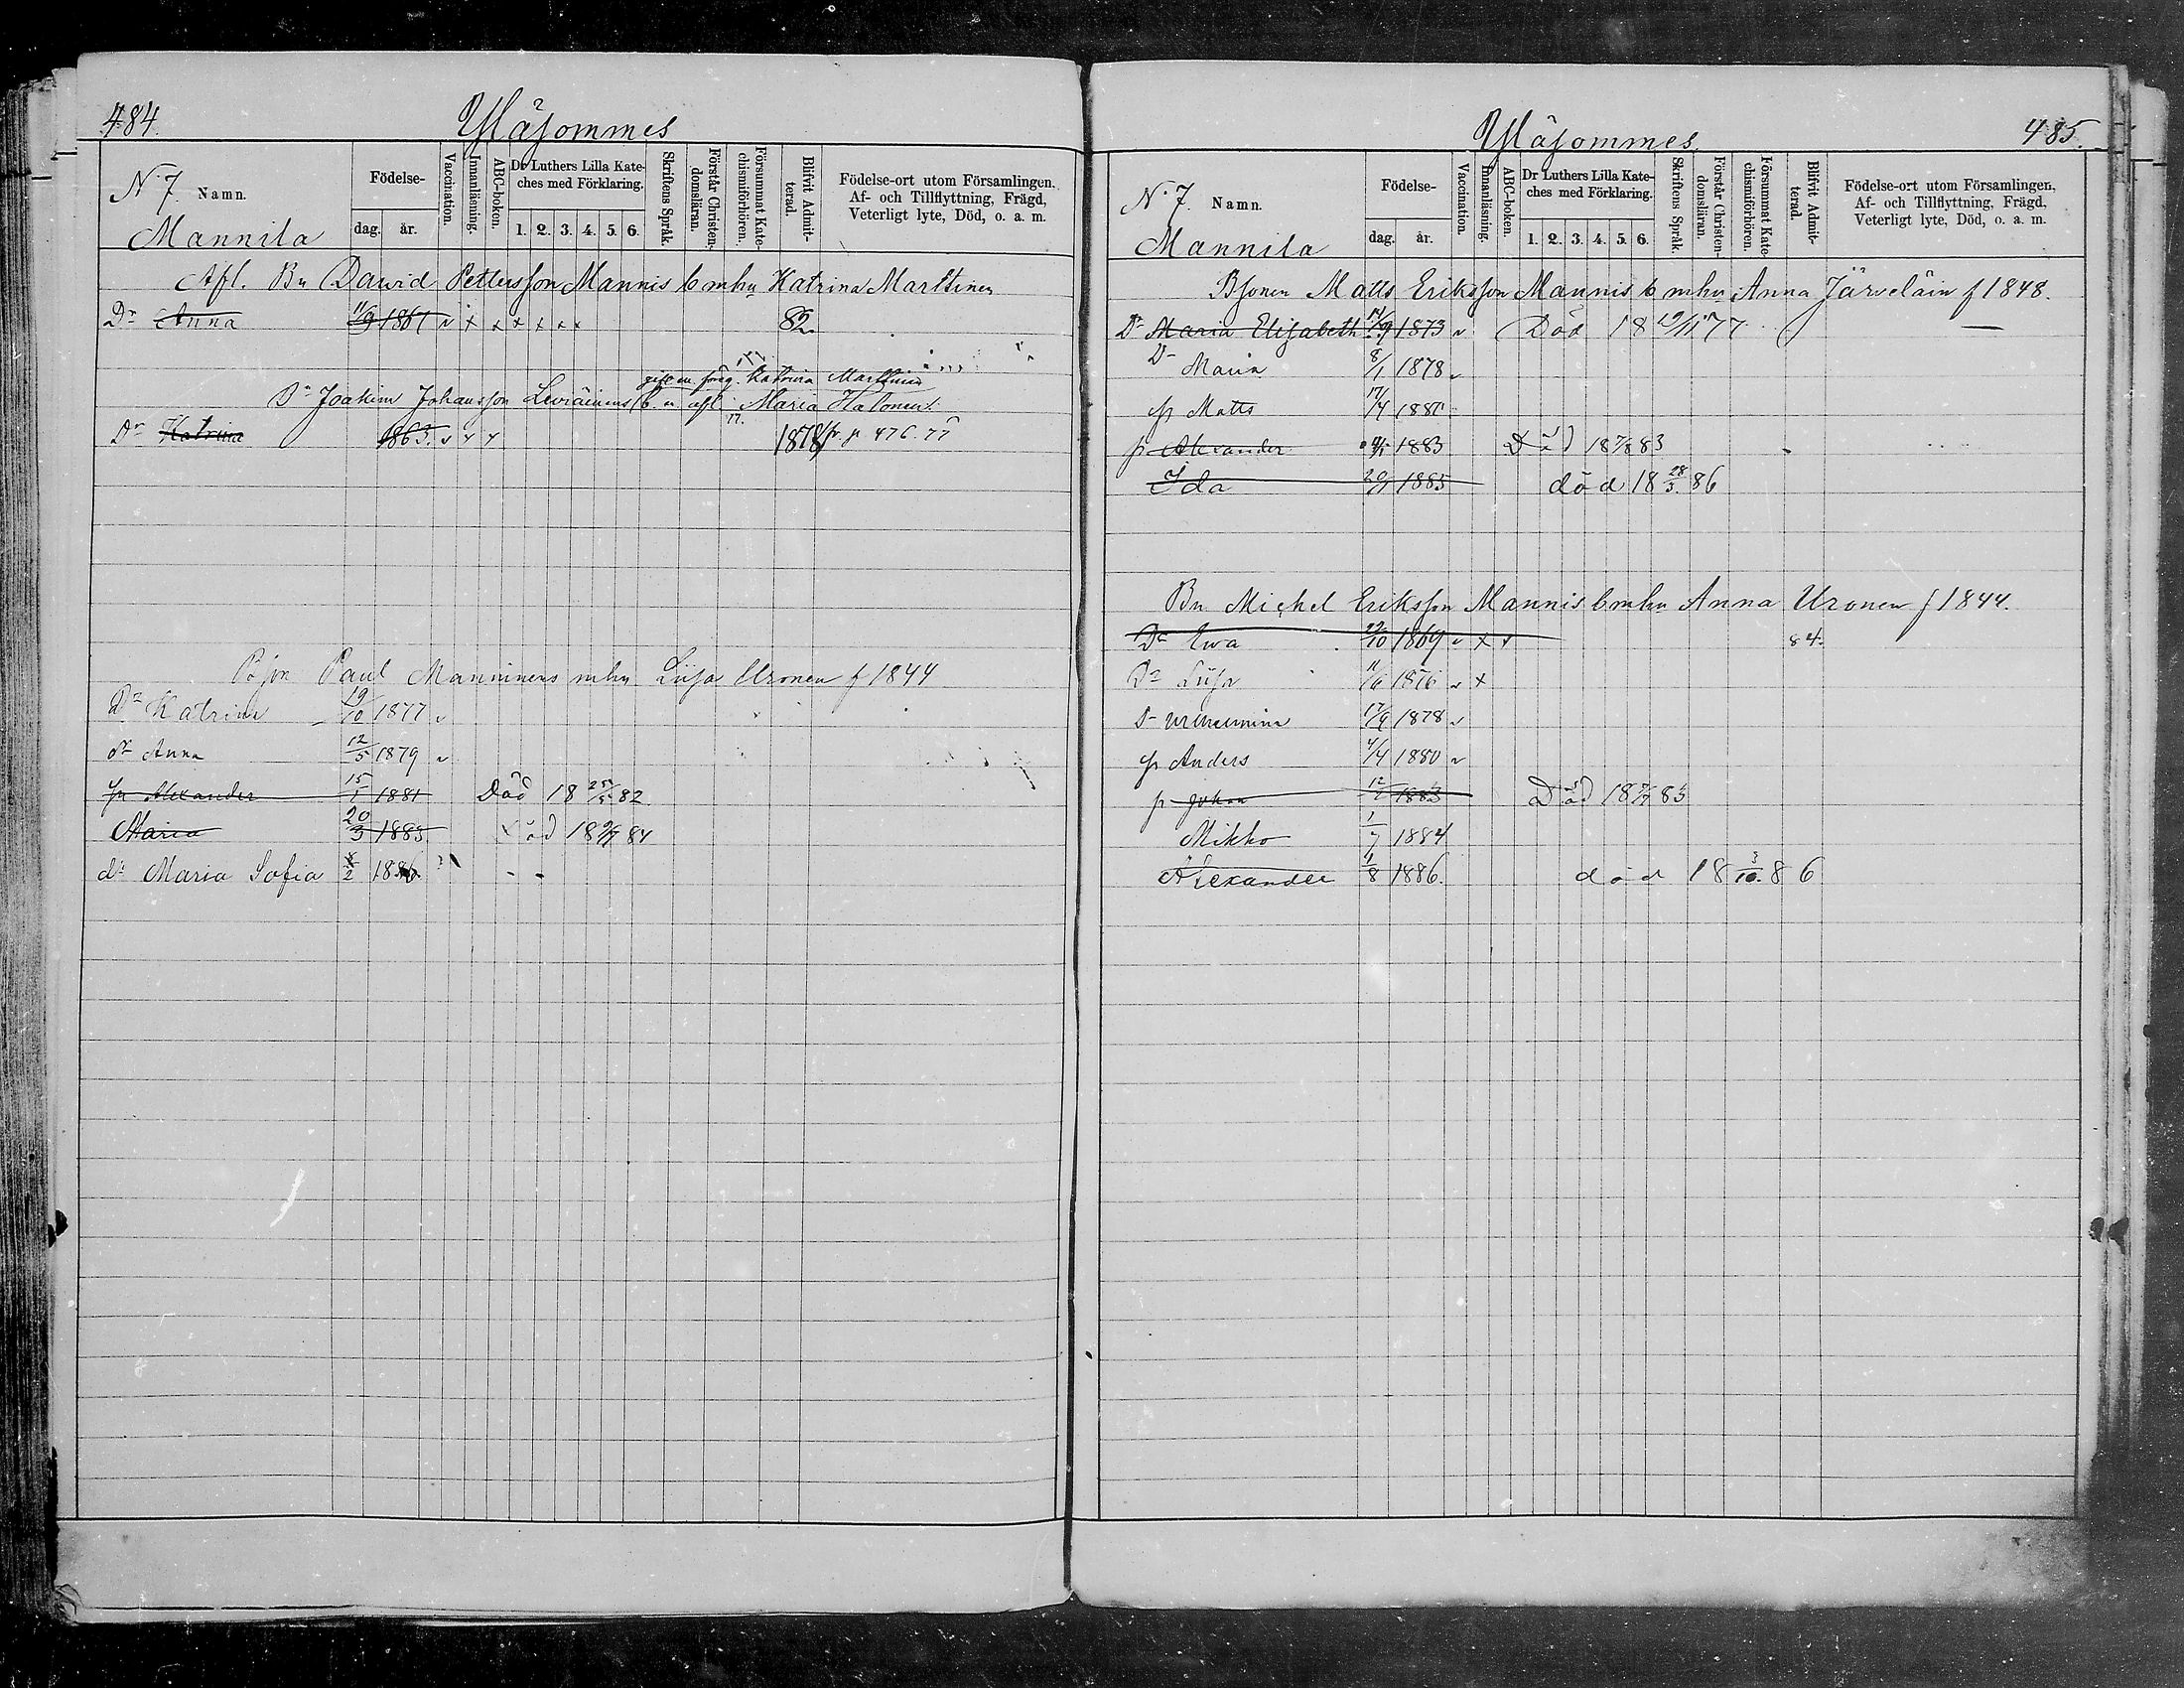 484.
Yläjommes
N. 7. Namn.
Mannila
Födelse-
dag. år.
Vaccination.
Innanläsning.
ABC-boken.
Dr Luthers Lilla Kate-
ches med Förklaring.
1. 2. 3. 4. 5. 6.
Skriftens Språk.
Förstår Christen-
domsläran.
Försummat Kate-
chismiförhören.
Blifvit Admit-
terad.
Födelse-ort utom Församlingen.
Af- och Tillflyttning, Frägd,
Veterligt lyte, Död, o. a. m.
Afl. Bn David Petterssson Mannis b mhu Katrina Marttinen
Dr Anna 11/9 1861 v x x x x x x 82
gift m. föreg. Katrina Marttinen
Bn Joakim Johansson Leviäinens b. n afl. Maria Halonen.
Dr Katrina 1863. v x x 1878 fr. p 476. 77
Bson Paul Manninens mhu Liisa Uronen f 1844
Dr Katrina 19/10 1877 v
dr Anna 12/5 1879 v
sn Alexander 15/1 1881 Död 18 25/5 82
Maria 20/3 1883. Död 18 84
dr Maria Sofia 8/2 1886
485.
Yläjommes.
N. 7. Namn.
Mannila
Födelse-
dag. år.
Vaccination.
Innanläsning.
ABC-boken.
Dr Luthers Lilla Kate-
ches med Förklaring.
1. 2. 3. 4. 5. 6.
Skriftens Språk.
Förstår Christen-
domsläran.
Försummat Kate-
chismiförhören.
Blifvit Admit-
terad.
Födelse-ort utom Församlingen,
Af- och Tillflyttning, Frägd,
Veterligt lyte, Död, o. a. m.
Bsonen Matts Eriksson Mannis b mhu Anna Järveläin f 1848.
Dr Maria Elisabeth 14/9 1873 v Död 18 19/11 77
Dr Maria 8/1 1878 v
sn Matts 17/4 1881
sn Alexander 1883 Död 18 7/8 83
Ida 1885 död 18 28/3. 86
Bn Michel Eriksson Mannis b mhu Anna Uronen f 1844.
Dr Ewa 22/10 1869 v x x 84.
Dr Liisa 11/6 1876 v x
Dr Wilhelmina 17/9 1878 v
sn Anders 4/4 1880 v
sn Johan 1883 Död 18 83
Mikko 1/7 1884
Alexander 1/8 1886. död 18 3/10. 86